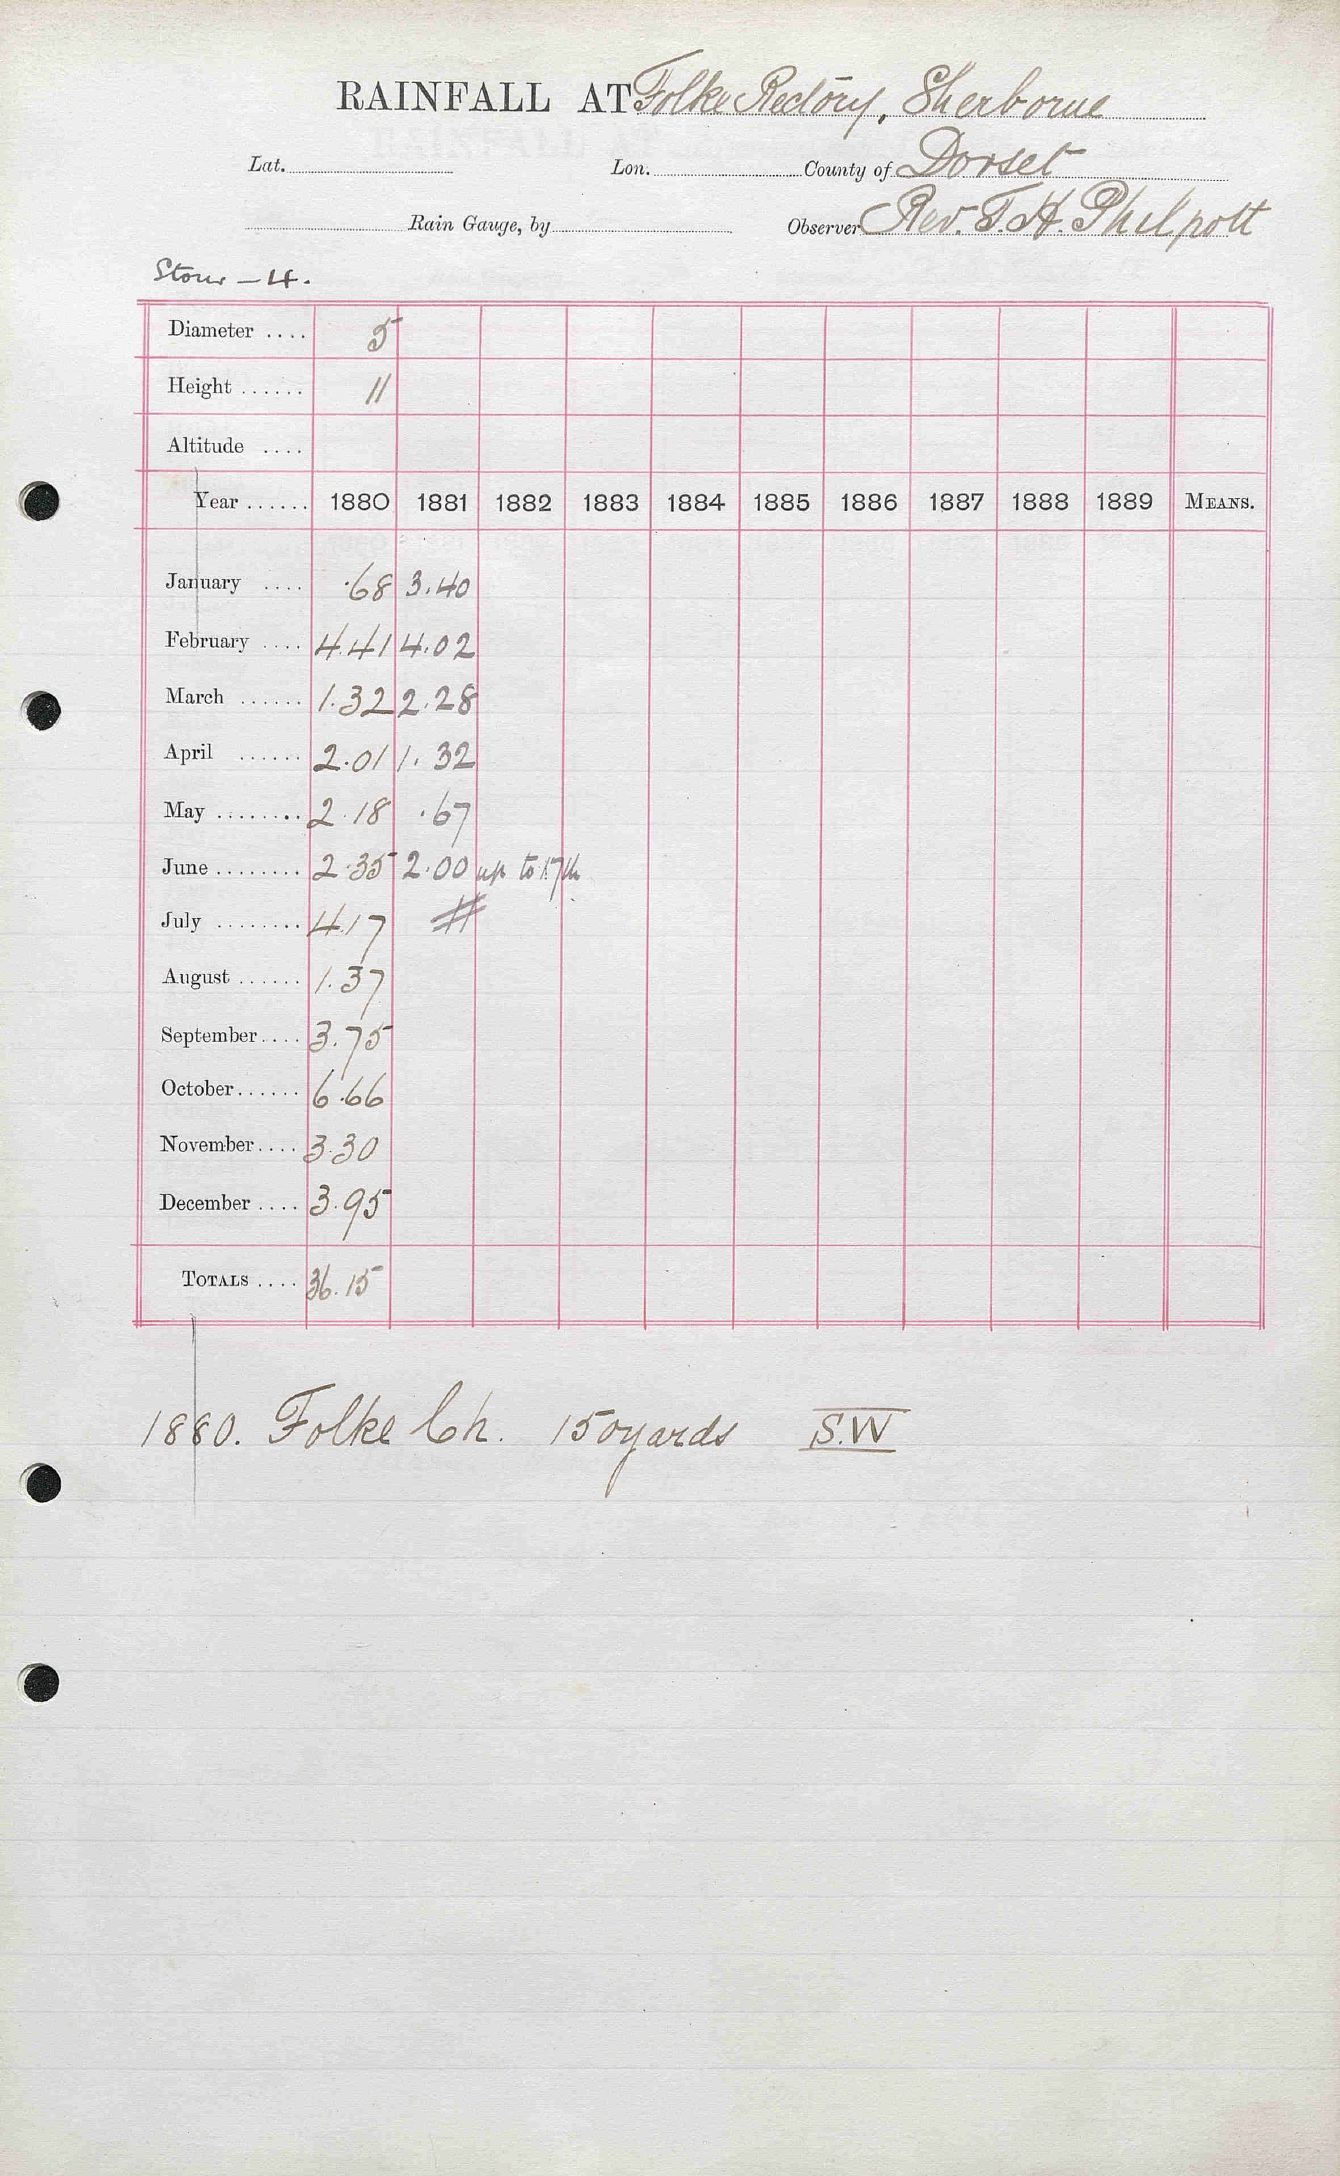 RAINFALL AT Folke Rectory, Sherborne
Lat. Lon. County of Dorset
Rain Gauge, by Observer Rev. T. H. Philpott
Stour – 4.
Diameter .... 5
Height ...... 11
Altitude ....
Year ...... 1880 1881 1882 1883 1884 1885 1886 1887 1888 1889 MEANS.
January .... .68 3.40
February .... 4.41 4.02
March ...... 1.32 2.28
April ...... 2.01 1.32
May ........ 2.18 .67
June ........ 2.35 2.00 up to 17th
July ........ 4.17
August ...... 1.37
September .... 3.75
October ...... 6.66
November .... 3.30
December .... 3.95
TOTALS .... 36.15
1880. Folke Ch. 150 yards S.W